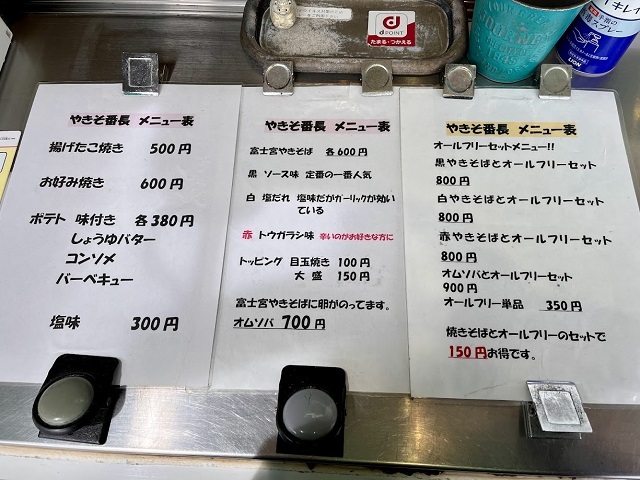 d POINT
たまる・つかえる
キレイ
スプレー
LION
やきそ番長 メニュー表
揚げたこ焼き 500円
お好み焼き 600円
ポテト 味付き 各380円
しょうゆバター
コンソメ
バーベキュー
塩味 300円
やきそ番長 メニュー表
富士宮やきそば 各600円
黒 ソース味 定番の一番人気
白 塩だれ 塩味だがガーリックが効い
ている
赤 トウガラシ味 辛いのがお好きな方に
トッピング 目玉焼き 100円
大盛 150円
富士宮やきそばに卵がのってます。
オムソバ 700円
やきそ番長 メニュー表
オールフリーセットメニュー!!
黒やきそばとオールフリーセット
800円
白やきそばとオールフリーセット
800円
赤やきそばとオールフリーセット
800円
オムソバとオールフリーセット
900円
オールフリー単品 350円
焼きそばとオールフリーのセットで
150円お得です。